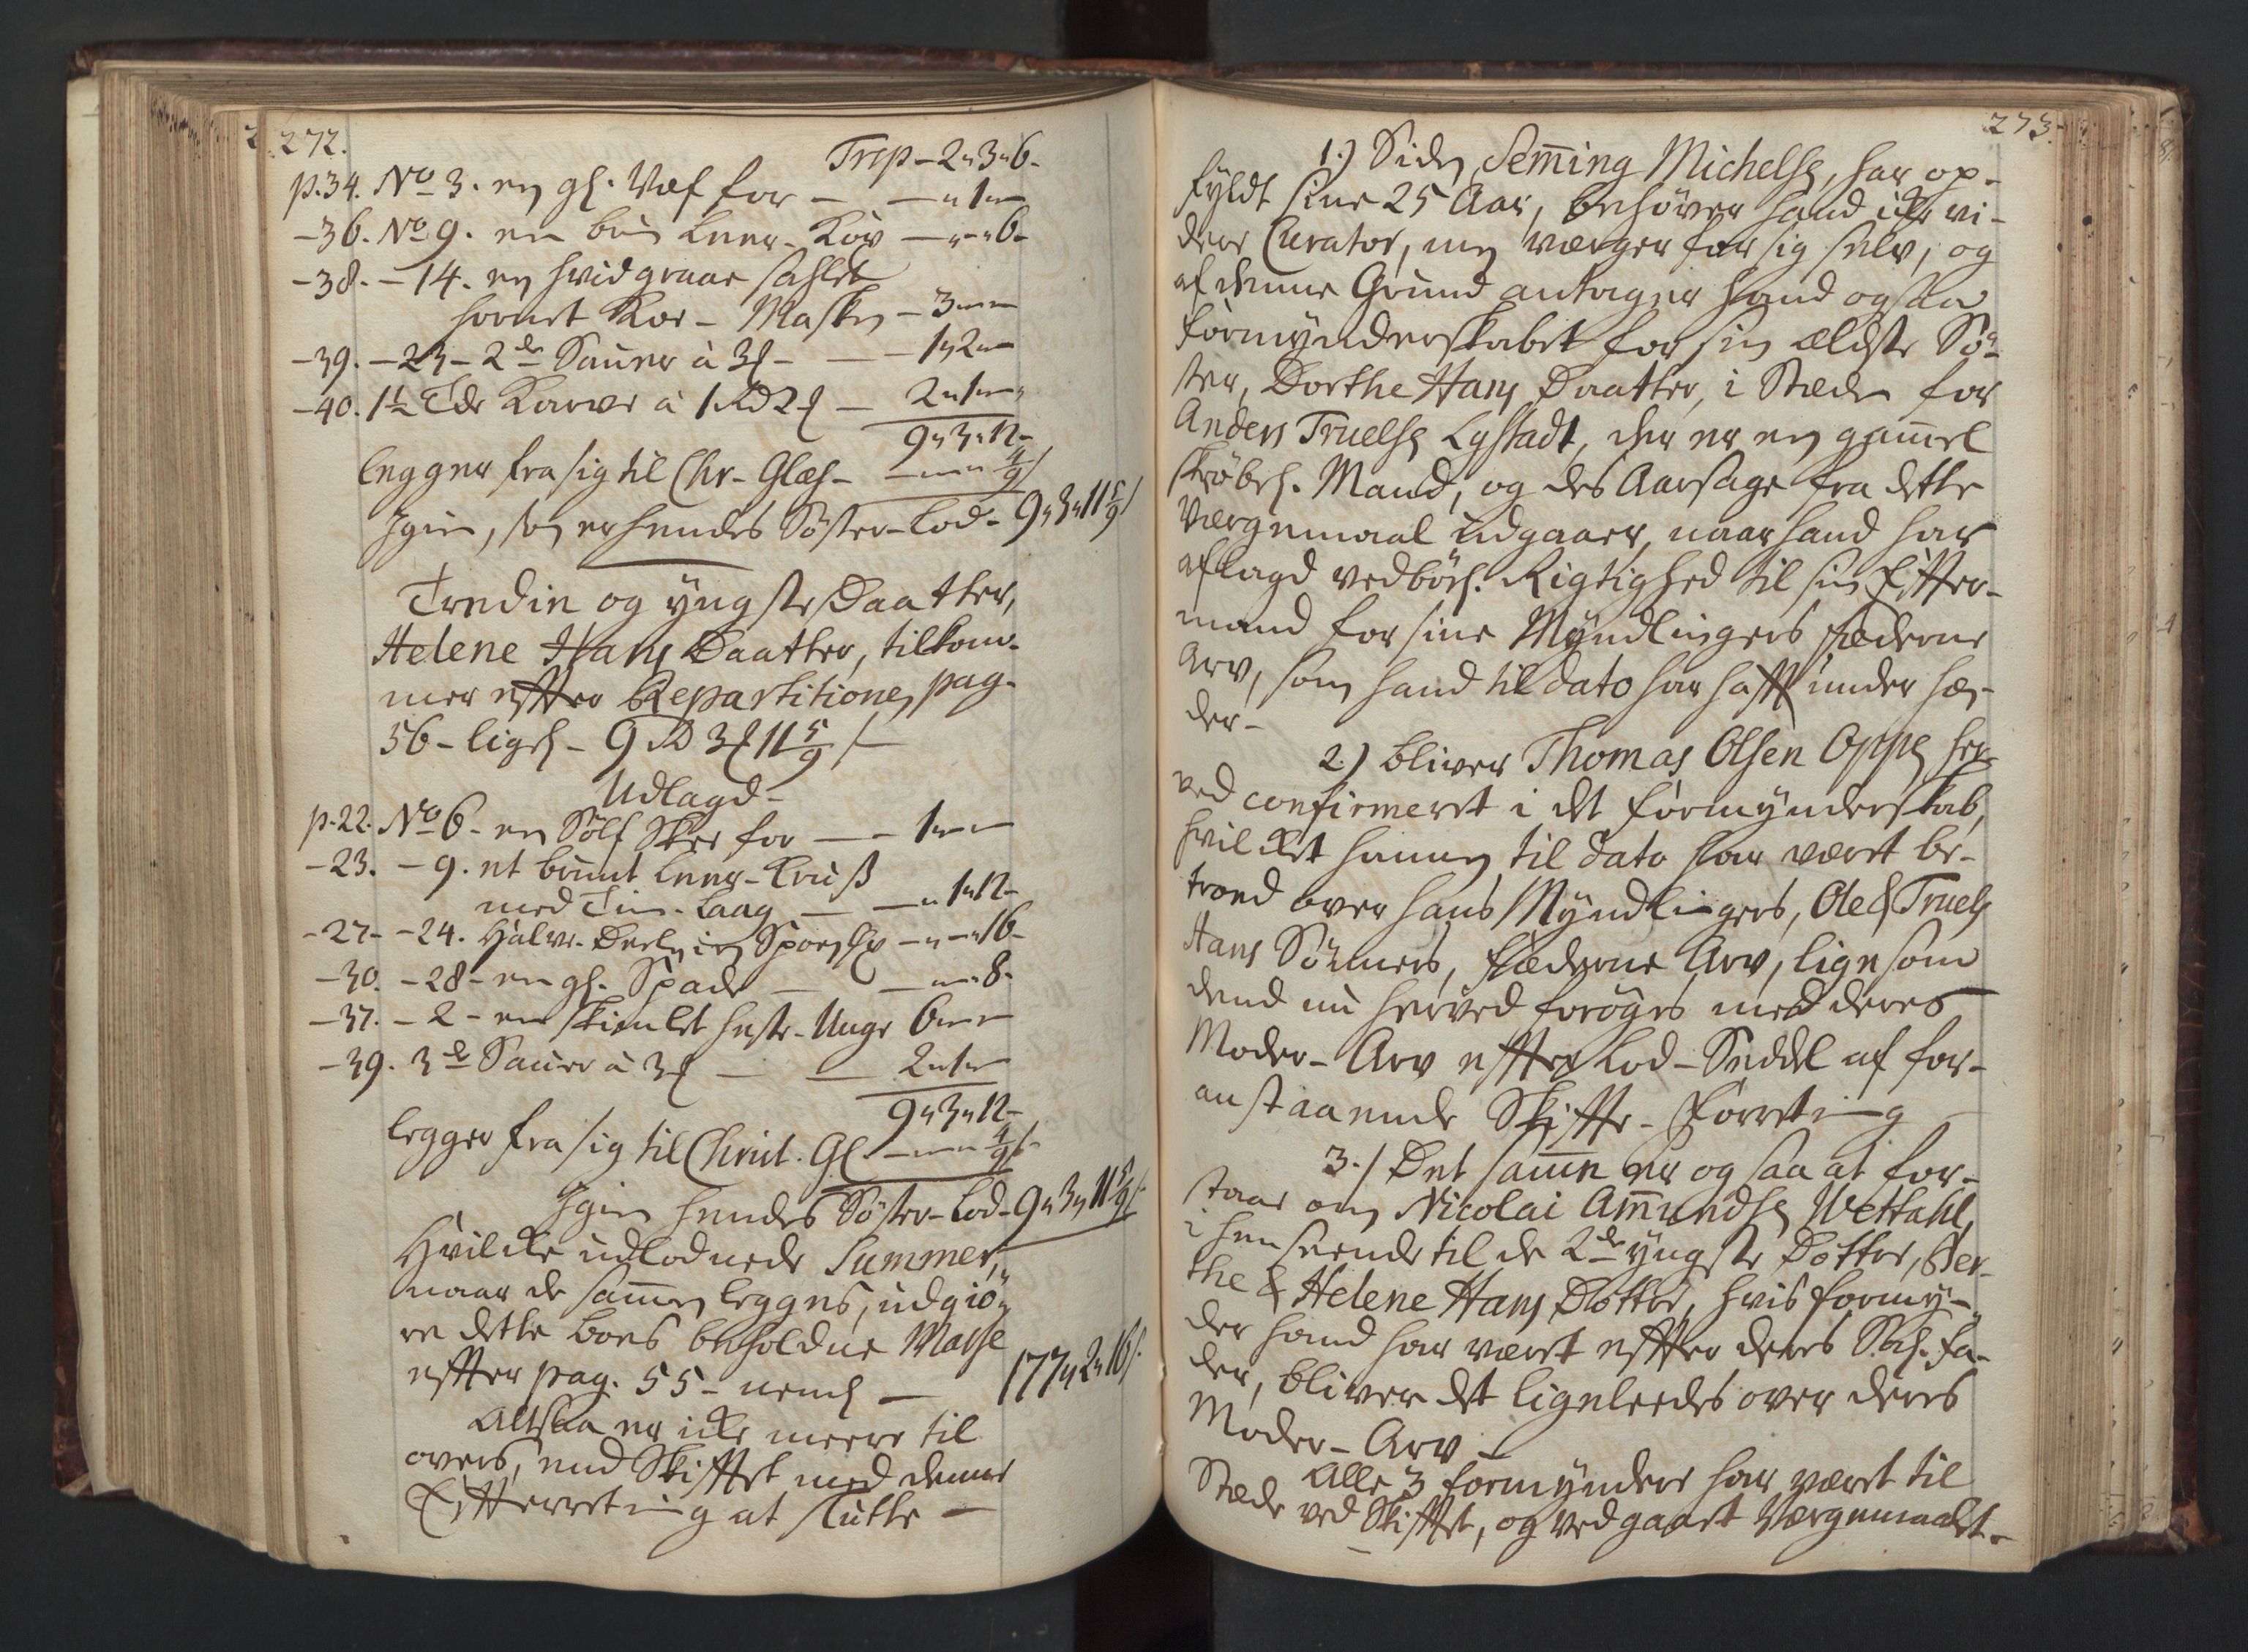 272.
Trsp - 2 " 3 " 6 -
p. 34. No 3. en gl. Væf for - - " 1 " -
- 36. No 9. en bun Leer - Kov - " - " 6 -
- 38. - 14. en hvidgraae sahlet
hornet Koe - Masken - 3 " - " -
- 39. - 23 - 2de Sauer à 3 - - 1 " 2 " -
- 40. 1½ Tde Korn à 1 Rd 2 - 2 " 1 " -
9 " 3 " 12 -
legger fra sig til Chr - Glæs - - " - " 4/9 /
Igien, som er hendes Söster - Lod - 9 " 3 " 11 5/9 /
Tredie og yngste Daatter,
Helene Hans Daatter, tilkom-
mer efter Repartitionen pag.
56 - ligel - 9 Rd 3 11 5/9 /
Udlagd -
p. 22. No 6 - en Sölf Skee for - - 1 " - " -
- 23. - 9. et bruunt Leer - Kruß
med Tin - Laag - - " 1 " 12 -
- 27 - - 24. Halve - Deelen i en - " - " 16 -
- 30. - 28 - en gl. Spade - - " - " 8 -
- 37. - 2 - en skimlet Heste - Unge 6 " - " -
- 39. 3de Sauer à 3 - - 2 " 1 " -
9 " 3 " 12 -
legger fra sig til Christ. Gl - " - " 4/9 /
Igien hendes Söster - Lod - 9 " 3 " 11 5/9 /
Hvilcke udlodnede Summer,
naar de samen legges, udgiö-
re dette Boes beholdne Masse
efter pag. 55 - neml - 177 " 2 " 16 /
Altsaa er icke meere til
overs, end Skifftet med denne
Efterretning at slutte -
273.
1.) Siden Seming Michelsen, har op-
fyldt sine 25 Aar, behöver hand icke vi-
dere Curator, men værger for sig selv, og
af denne Grund antager hand ogsaa
Formynderskabet for sin ældste Sö-
ster, Dorthe Hans Daatter, i Stæden for
Anders Truelsen Lystadt, der er en gamel
skröbel. Mand, og des Aarsage fra dette
Værgemaal udgaaer, naar hand har
aflagd vedbörl. Rigtighed til sin Efter-
mand for sine Myndlingers Fæderne
Arv, som hand til dato har hafft under Hæn-
der -
2.) bliver Thomas Olsen Oppen her-
ved confirmeret i det Formynderskab,
hvilcket hannem til dato har været be-
troed over hans Myndlingers, Ole & Truels
Hans Sönners, Fæderne Arv, ligesom
dend nu herved foröges med deres
Moder - Arv effter Lod - Seddel af for-
anstaaende Skiffte - Forretning
3. / Det samme er ogsaa at for-
staae om Nicolai Amundsen Wettahl,
i henseende til de 2de yngste Döttre, Ber-
the & Helene Hans Döttre, hvis Formyn-
der hand har været effter deres Sal. Fa-
der, bliver det ligeleedes over deres
Moder - Arv -
Alle 3 Formyndere har været til
Stæde ved Skifftet, og vedgaaet Værgemaalet -